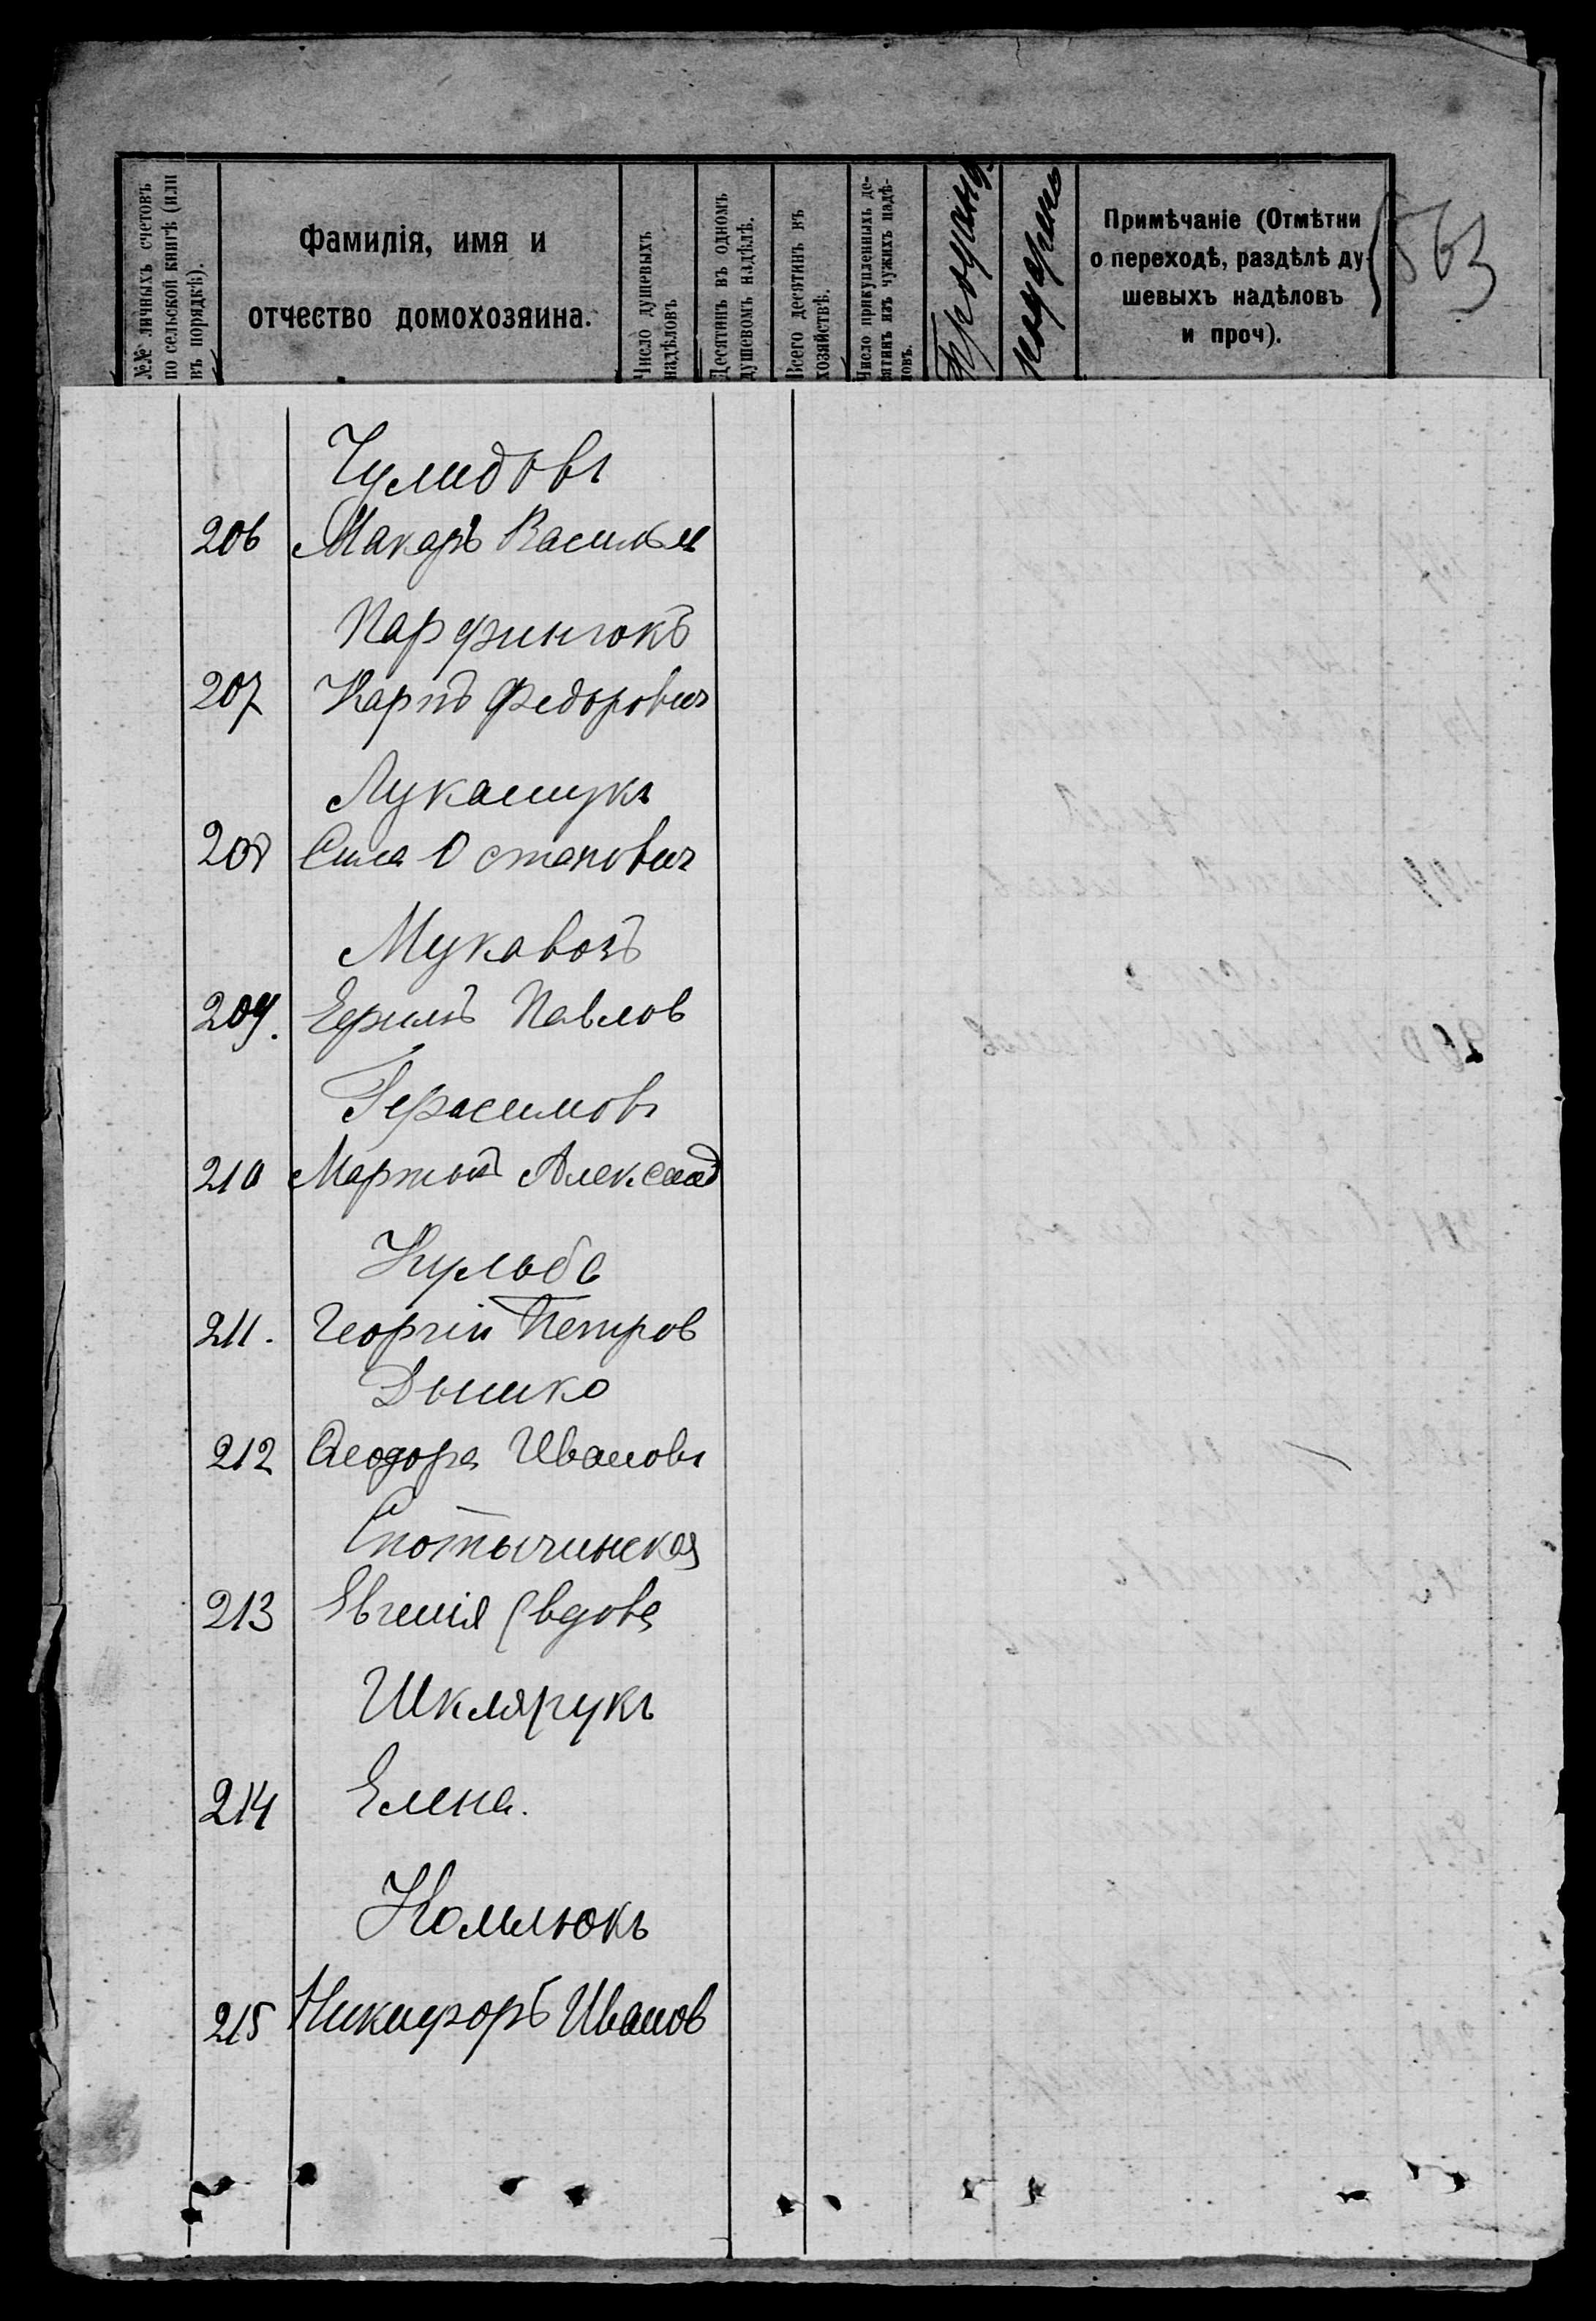 №№ личныхъ счетовъ
по сельской книгѣ (или
въ порядкѣ).
Фамилія, имя и
отчество домохозяина.
Число душевыхъ
надѣловъ
Десятинъ въ одномъ
душевомъ надѣлѣ.
Всего десятинъ въ
хозяйствѣ.
Число прикупленныхъ де-
сятинъ изъ чужихъ надѣ-
ловъ.
Примѣчаніе (Отмѣтки
о переходѣ, раздѣлѣ ду-
шевыхъ надѣловъ
и проч).
563
Чулидовъ
206 Макаръ Васильев
Парфинюкъ
207 Карпъ Федорович
Лукашукъ
208 Сила Остапович
Мукавозъ
209. Ефимъ Павлов
Герасимовъ
210 Мартынъ Александ
Кульба
211. Георгій Петров
Дышко
212 Ѳеодора Ивановъ
Спотычинская
213 Евгенія (вдова
Шклярукъ
214 Елена.
Комлюкъ
215 Никифоръ Иванов